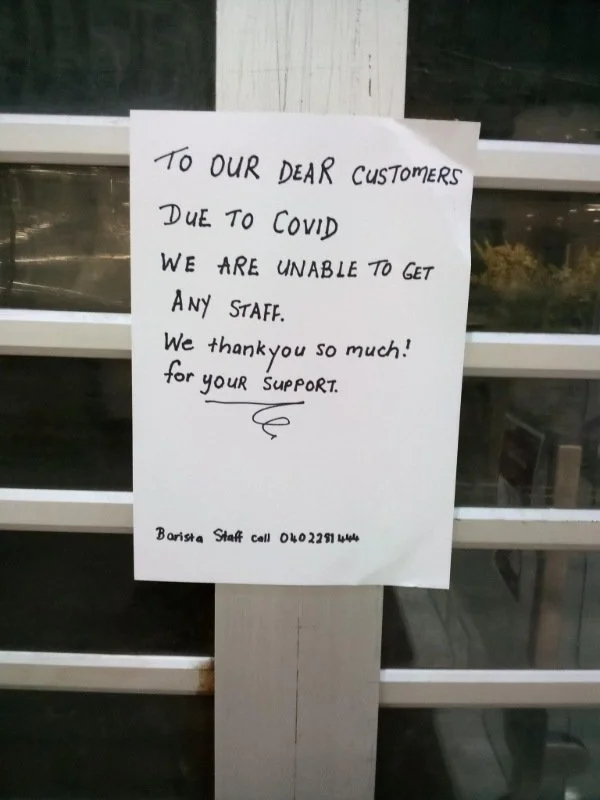 TO OUR DEAR CUSTOMERS
DUE TO COVID
WE ARE UNABLE TO GET
ANY STAFF.
We thankyou so much!
for YOUR SUPPORT.
Barista Staff call 0402281444